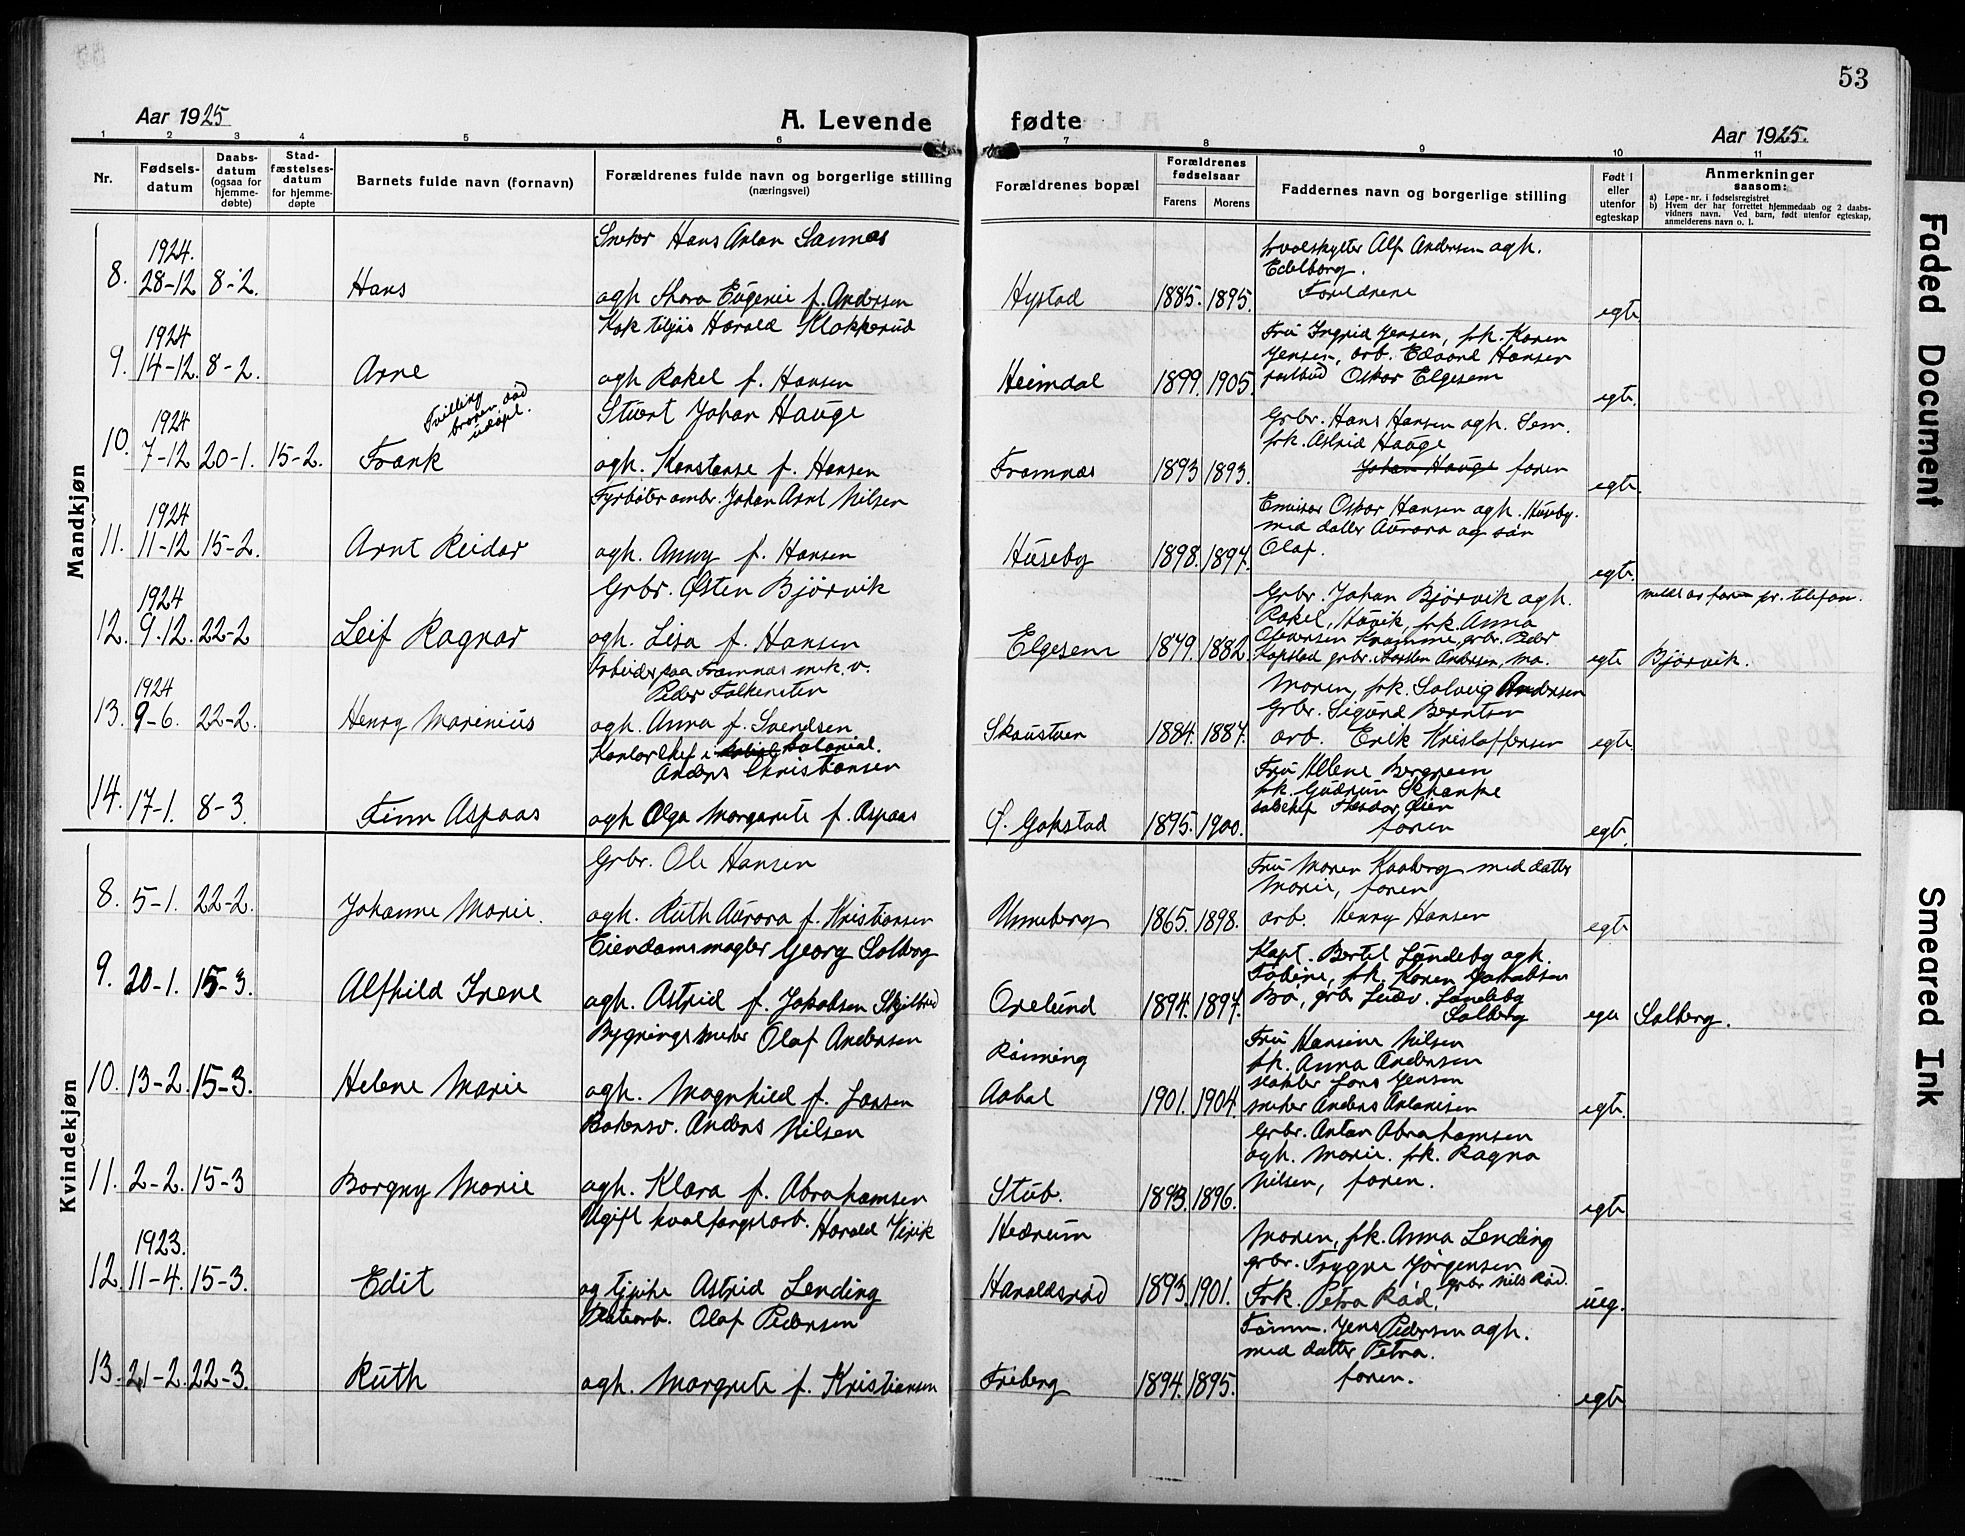 53
Aar 1925
A. Levende
fødte
Aar 1925.
1 2 3 4 5 6 7 8 9 10 11
Nr.
Fødsels-
datum
Daabs-
datum
(ogsaa for
hjemme-
døbte)
Stad-
fæstelses-
datum
for hjemme-
døpte
Barnets fulde navn (fornavn)
Forældrenes fulde navn og borgerlige stilling
(næringsvei)
Forældrenes bopæl
Forældrenes
fødselsaar
Farens Morens
Faddernes navn og borgerlige stilling
Født i
eller
utenfor
egteskap
Anmerkninger
saasom:
a) Løpe-nr. i fødselsregistret
b) Hvem der har forrettet hjemmedaab og 2 daabs-
vidners navn. Ved barn, født utenfor egteskap,
anmelderens navn o. l.
Mandkjøn
8. 1924. 28-12 8-2. Hans
Snekker Hans Anton Sannæs
agh. Thora Eugenie f. Andersen
Hystad 1885. 1895.
hvalskytter Alf Andersen agh.
Edelborg.
Forældrene
egte
9. 1924 14-12. 8-2. Arne
Kok Harald Klokkerud
agh. Rakel f. Hansen
Heimdal 1899. 1905.
Fru Ingrid Jensen, frk. Karen
Jensen, arb. Edvard Hansen
Oskar Elgesem
egte.
10. 1924 7-12 20-1. 15-2. Frank
Tvilling
broren død
udøpt.
Stuert Johan Hauge
agh. Konstanse f. Hansen
Framnæs 1893 1893.
Grbr. Hans Hansen agh. Sem.
frk. Astrid Hauge
Johan Hauge faren
egte.
11. 1924 11-12 15-2. Arnt Reidar
Fyrbøter ombr. Johan Arnt Nilsen
agh. Anny f. Hansen
Huseby 1898. 1897.
Oskar Hansen agh. Huseby.
med datter Aurora og søn
Olaf.
egte.
12. 1924 9.12. 22-2 Leif Ragnar
Grbr. Østen Bjørvik
agh. Lisa f. Hansen
Elgesem 1879. 1882
Grbr. Johan Bjørvik agh.
Rakel, Haavik, frk. Anna
Andersen,
egte
meldt av faren pr. telefon.
Bjørvik.
13. 1924 9-6. 22-2. Henry Marinius
Arbeider paa Framnæs mek. v.
Peder Falkensten
agh. Anna f. Svendsen
Skaustuen 1884. 1887.
Moren, frk. Solveig Andersen
Grbr. Sigurd Berntsen
arb. Erik Kristoffersen
egte
14. 17-1. 8-3. Finn Aspaas
Kontorchef i kolonial.
Anders Christiansen
agh. Olga Margarete f. Aspaas
Ø. Gokstad 1895. 1900.
Fru Bergreen
frk. Gudrun Schanke
faren
egte.
Kvindekjøn
8. 5-1. 22-2. Johanne Marie.
Grbr. Ole Hansen
agh. Ruth Aurora f. Kristiansen
Unneberg 1865. 1898.
Fru Maren Kaaberg med datter
Marie, faren
arb. Henry Hansen
egte
9. 20-1. 15-3. Alfhild Irene
Eiendomsmægler Georg Solberg
agh. Astrid f. Jakobsen Skjelbred
Orelund 1894. 1897.
Kapt. Bertel Lundeby agh.
Tobine, frk. Karen Jakobsen
Bø, grbr. Lundeby
Solberg
Solberg.
10. 13-2. 15-3. Helene Marie
Bygningssnekker Olaf Andersen
agh. Magnhild f. Larsen
Rønning
Aabøl 1901. 1904.
Fru Hansine Nilsen
frk. Anna Andersen
Lars Jensen
snekker Anders Antonisen
egte.
11. 2-2. 15-3 Borgny Marie
Bateksv. Anders Nilsen
agh. Klara f. Abrahamsen
Stub. 1893. 1896.
Grbr. Anton Abrahamsen
agh. Marie. frk. Ragna
Nilsen, faren.
egte
12. 1923. 11-4. 15-3. Edit
Ugift hvalfangstarb. Harald Virik
og tjpike Astrid Lending
Hedrum
Haraldsrød 1893. 1901.
Moren, frk. Anna Lending
grbr. Trygve Jørgensen
Frk. Petra Rød, grbr Nils Rød.
ueg.
13. 21-2. 22-3. Ruth
Olaf Pedersen
agh. Margrete f. Kristiansen
Friberg 1894. 1895.
Tømm. Jens Pedersen agh.
med datter Petra.
faren.
egte
Faded Document
Smeared Ink